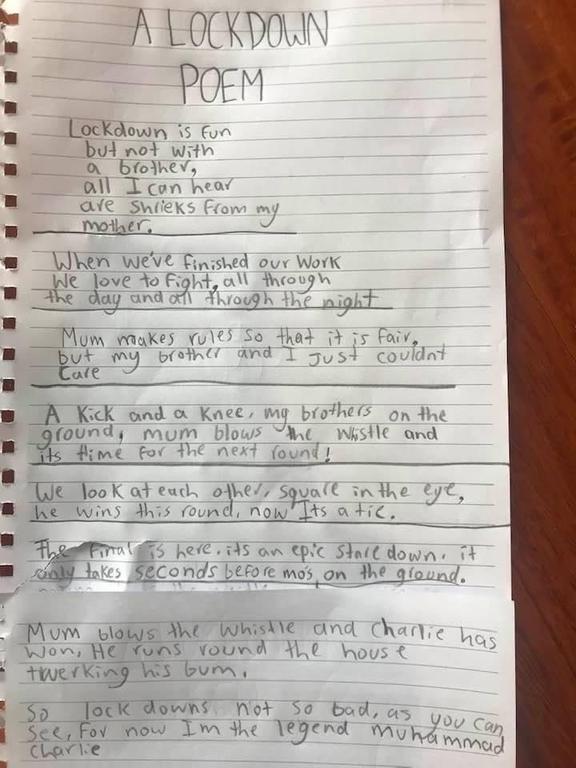 A LOCKDOWN
POEM
Lockdown is fun
but not with
a brother,
all I can hear
are shrieks from my
mother.
When we've finished our work
We love to fight, all through
the day and all through the night
Mum makes rules so that it is fair,
but my brother and I Just couldnt
care
A Kick and a Knee, my brothers on the
ground, mum blows the whistle and
its time for the next round!
We look at each other, square in the eye,
he wins this round, now Its a tie.
The final is here, its an epic stare down, it
only takes seconds before mo's on the ground.
Mum blows the whistle and Charlie has
won, He runs round the house
twerking his bum.
So lock downs not so bad, as you can
see, For now Im the legend muhammad
Charlie